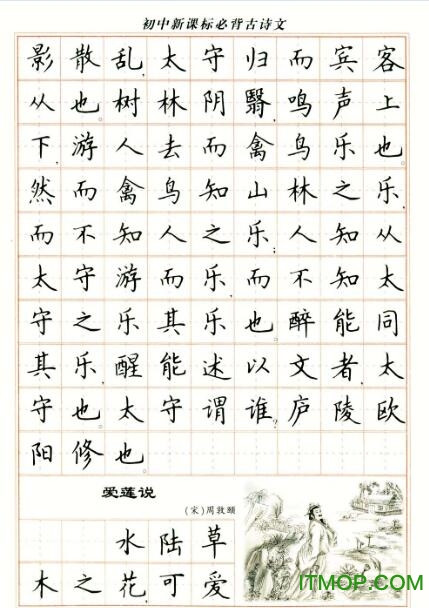 初中新课标必背古诗文
影散乱,太守归而宾客
从也。树林阴翳,鸣声上
下,游人去而禽鸟乐也。
然而禽鸟知山林之乐,
而不知人之乐;人知从
太守游而乐,而不知太
守之乐其乐也。醉能同
其乐,醒能述以文者,太
守也。太守谓谁?庐陵欧
阳修也。
爱莲说
(宋)周敦颐
水陆草
木之花,可爱
ITMOP.COM